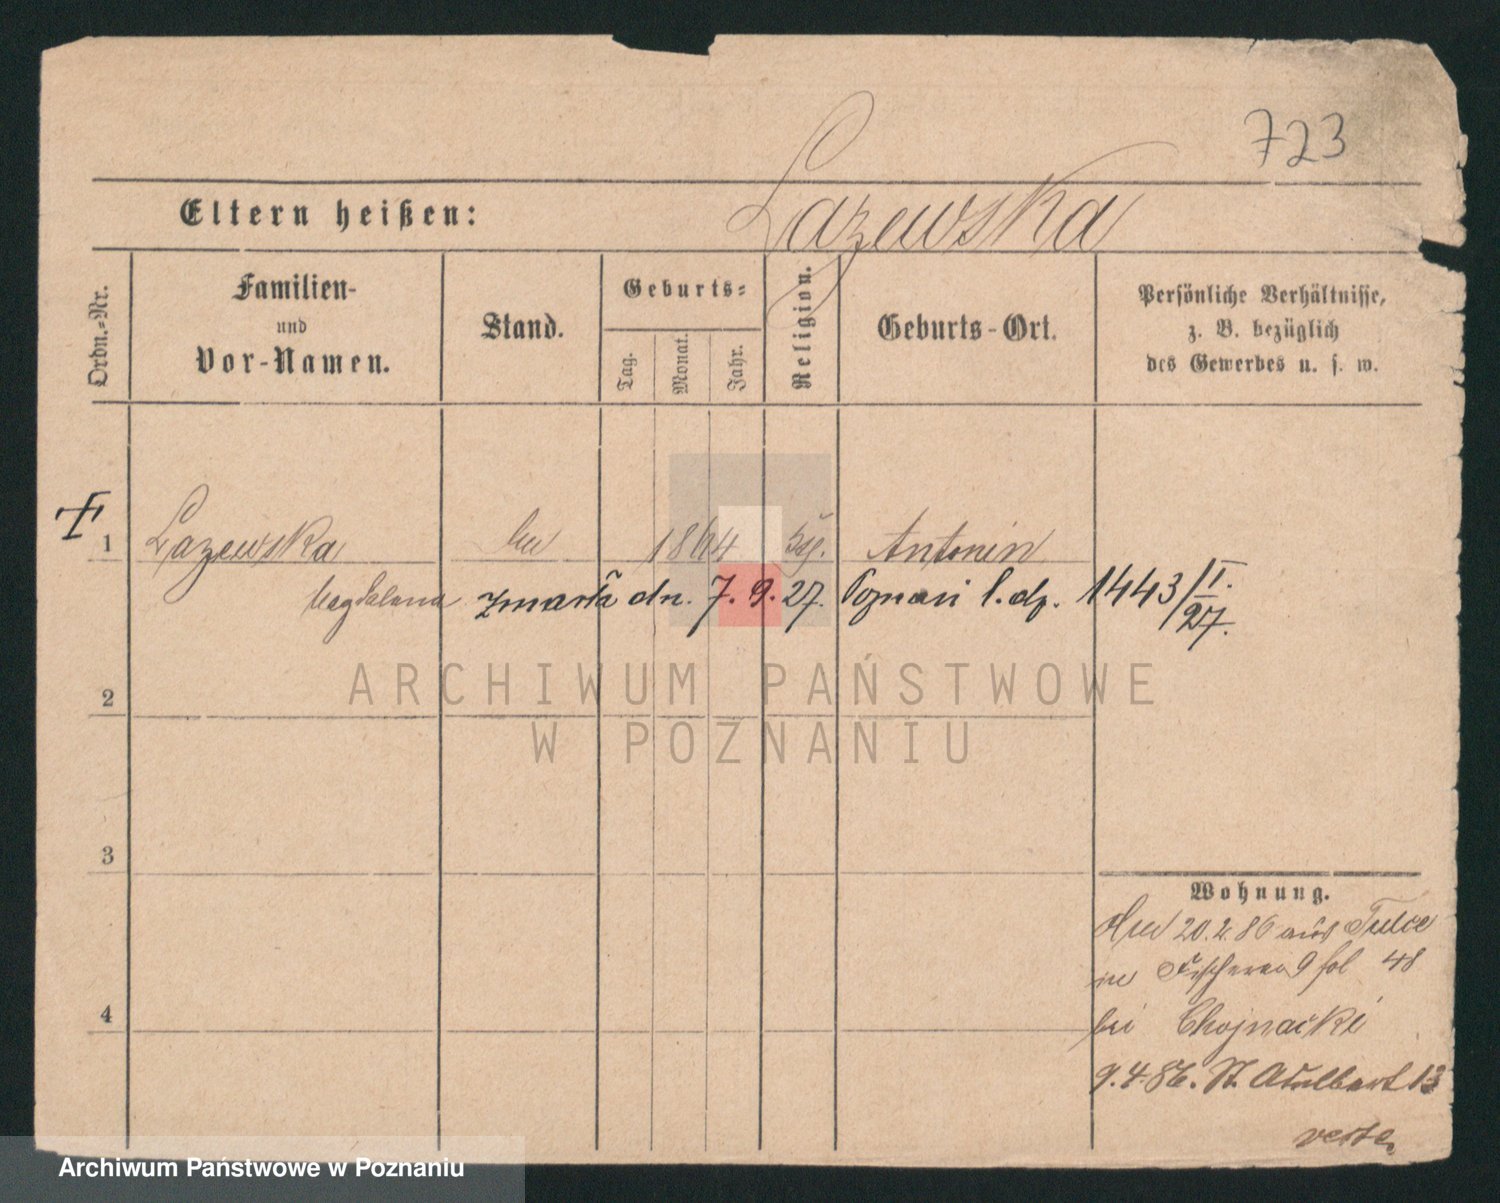 723
Eltern heißen: Lazewska
Ordn.-Nr.
Familien-
und
Vor-Namen.
Stand.
Geburts-
Tag.
Monat.
Jahr.
Religion.
Geburts-Ort.
Persönliche Verhältnisse,
z. B. bezüglich
des Gewerbes u. s. w.
1 Lazewska 1864 Antonin
Magdalena zmarła dn. 7. 9. 27. Poznań l. dz. 1443/I.
27.
ARCHIWUM PAŃSTWOWE
W POZNANIU
2
3
4
Wohnung.
20.2.86 aus Tulce
in Fischerei 9 fol 48
bei Chojnacki
9.4.86. St. Adalbert 13
verte
Archiwum Państwowe w Poznaniu